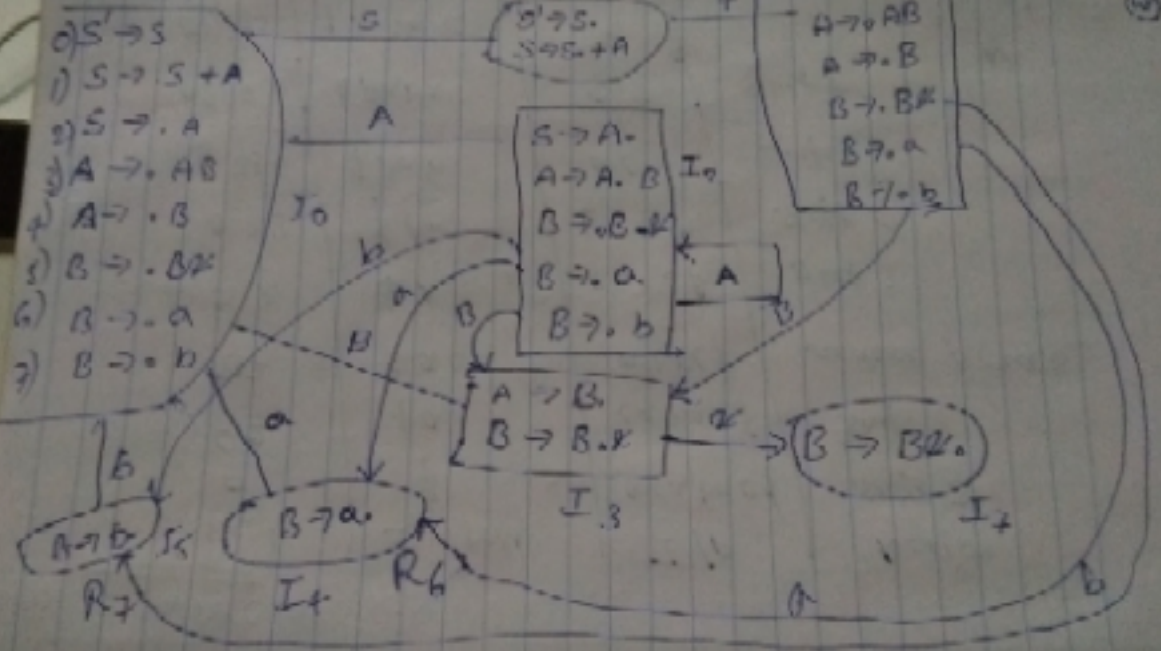 0) S' → S
1) S → S + A
2) S → . A
3) A → . AB
4 A → . B
5) B → . B*
6) B → . a
7) B → . b
I0
S
S' → S.
S → S. + A
+
A → . AB
A → . B
B → . B*
B → . a
B → . b
A
S → A.
A → A. B
B → . B *
B → . a
B → . b
A
b
a
B
B
B
A → B.
B → B. *
I3
*
B → B*.
a
b
R7
B → a.
R6
a
b